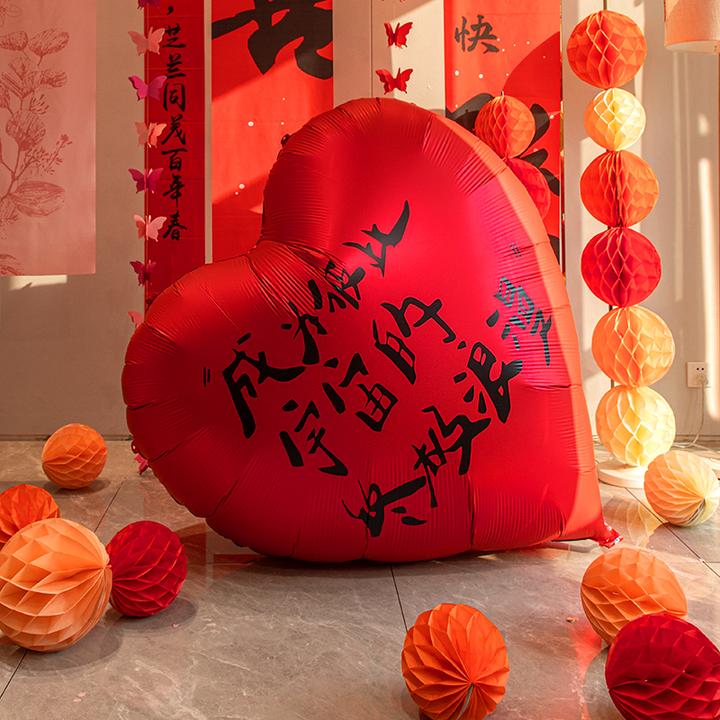 芝兰同茂百年春
快
成为彼此
宇宙的
数浪漫